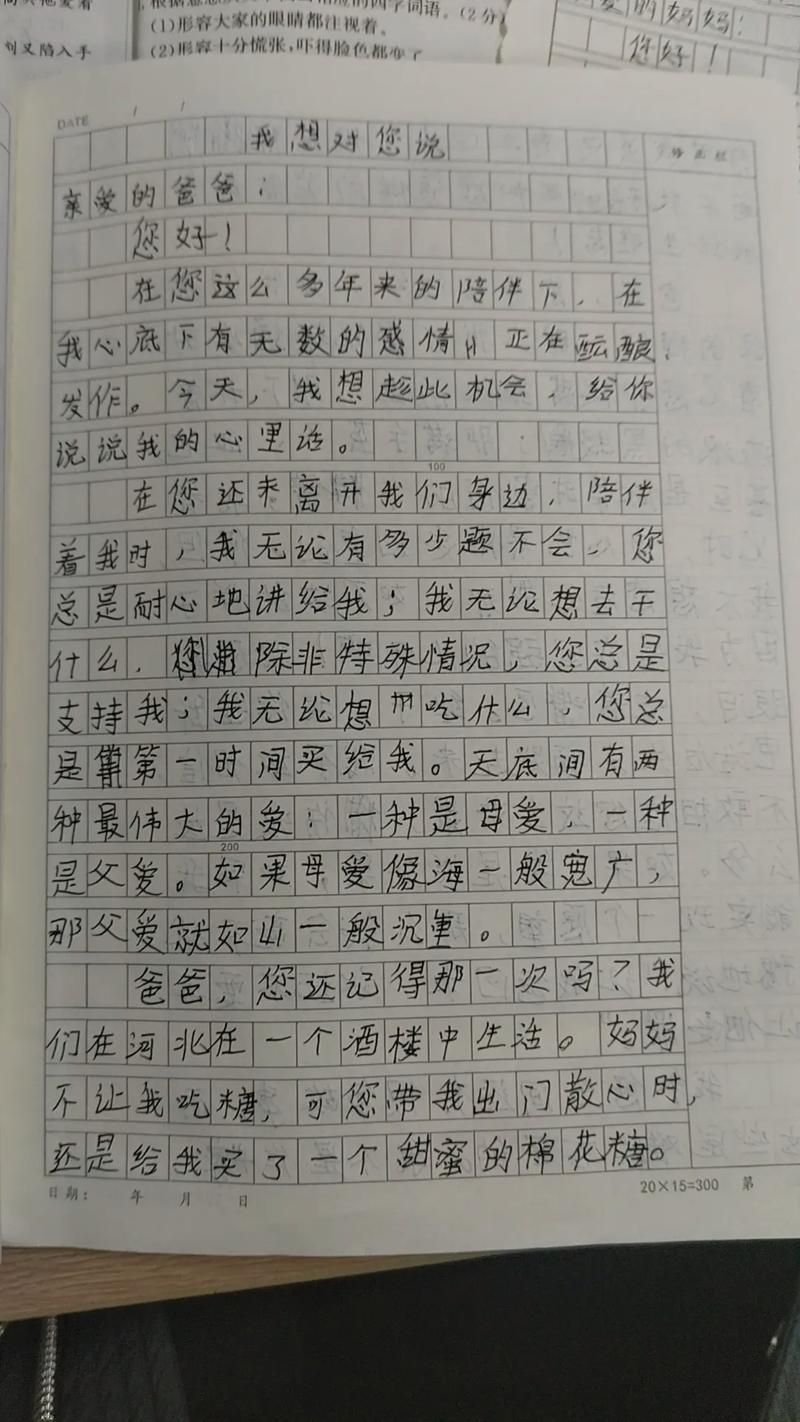 (1)形容大家的眼睛都注视着。
(2)形容十分慌张,吓得脸色都变了
四字词语。(2分)
刘又陷入手
爱的妈妈:
您好!
DATE / /
我想对您说
亲爱的爸爸:
您好!
在您这么多年来的陪伴下,在
我心底下有无数的感情 正在酝酿、
发作。今天,我想趁此机会,给你
说说我的心里话。
100
在您还未离开我们身边,陪伴
着我时,我无论有多少题不会,您
总是耐心地讲给我;我无论想去干
什么,除非特殊情况,您总是
支持我;我无论想吃什么,您总
是第一时间买给我。天底间有两
种最伟大的爱:一种是母爱,一种
是父爱。如果母爱像海一般宽广,
200
那父爱就如山一般沉重。
爸爸,您还记得那一次吗?我
们在河北在一个酒楼中生活。妈妈
不让我吃糖,可您带我出门散心时,
还是给我买了一个甜蜜的棉花糖。
日期: 年 月 日
20×15=300 第